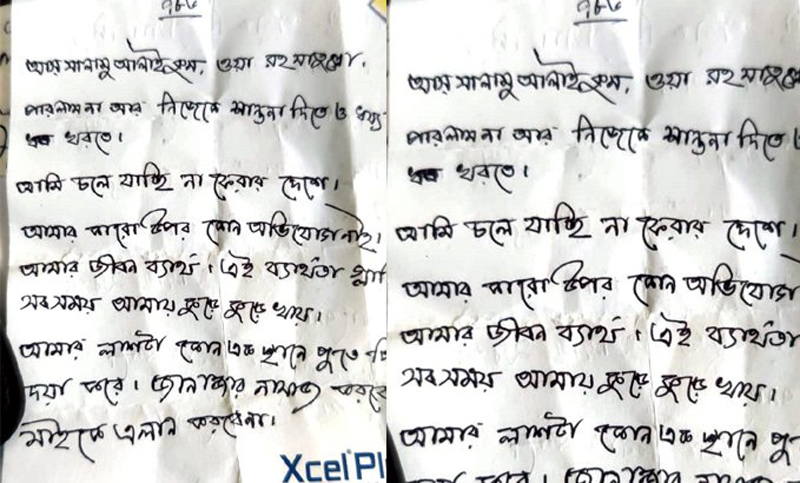 ৭৮৬
আস সালামু আলাইকুম, ওয়া রহমাতুল্লাহ।
পারলাম না আর নিজেকে শান্তনা দিতে ও ধৈয্য
ধরতে।
আমি চলে যাচ্ছি না ফেরার দেশে।
আমার কারো উপর কোন অভিযোগ নাই।
আমার জীবন ব্যার্থ। এই ব্যার্থতা
সব সময় আমায় কুড়ে কুড়ে খায়।
আমার লাশটা কোন এক স্থানে পুতে
দয়া করে। জানাজার নামাজ করবে
মাইকে এলান করবেনা।
XcelPl
৭৮৬
আস সালামু আলাইকুম, ওয়া
পারলাম না আর নিজেকে শান্তনা দিতে
ধরতে।
আমি চলে যাচ্ছি না ফেরার দেশে।
আমার কারো উপর কোন অভিযোগ
আমার জীবন ব্যার্থ। এই ব্যার্থতা
সব সময় আমায় কুড়ে কুড়ে খায়।
আমার লাশটা কোন এক স্থানে পু